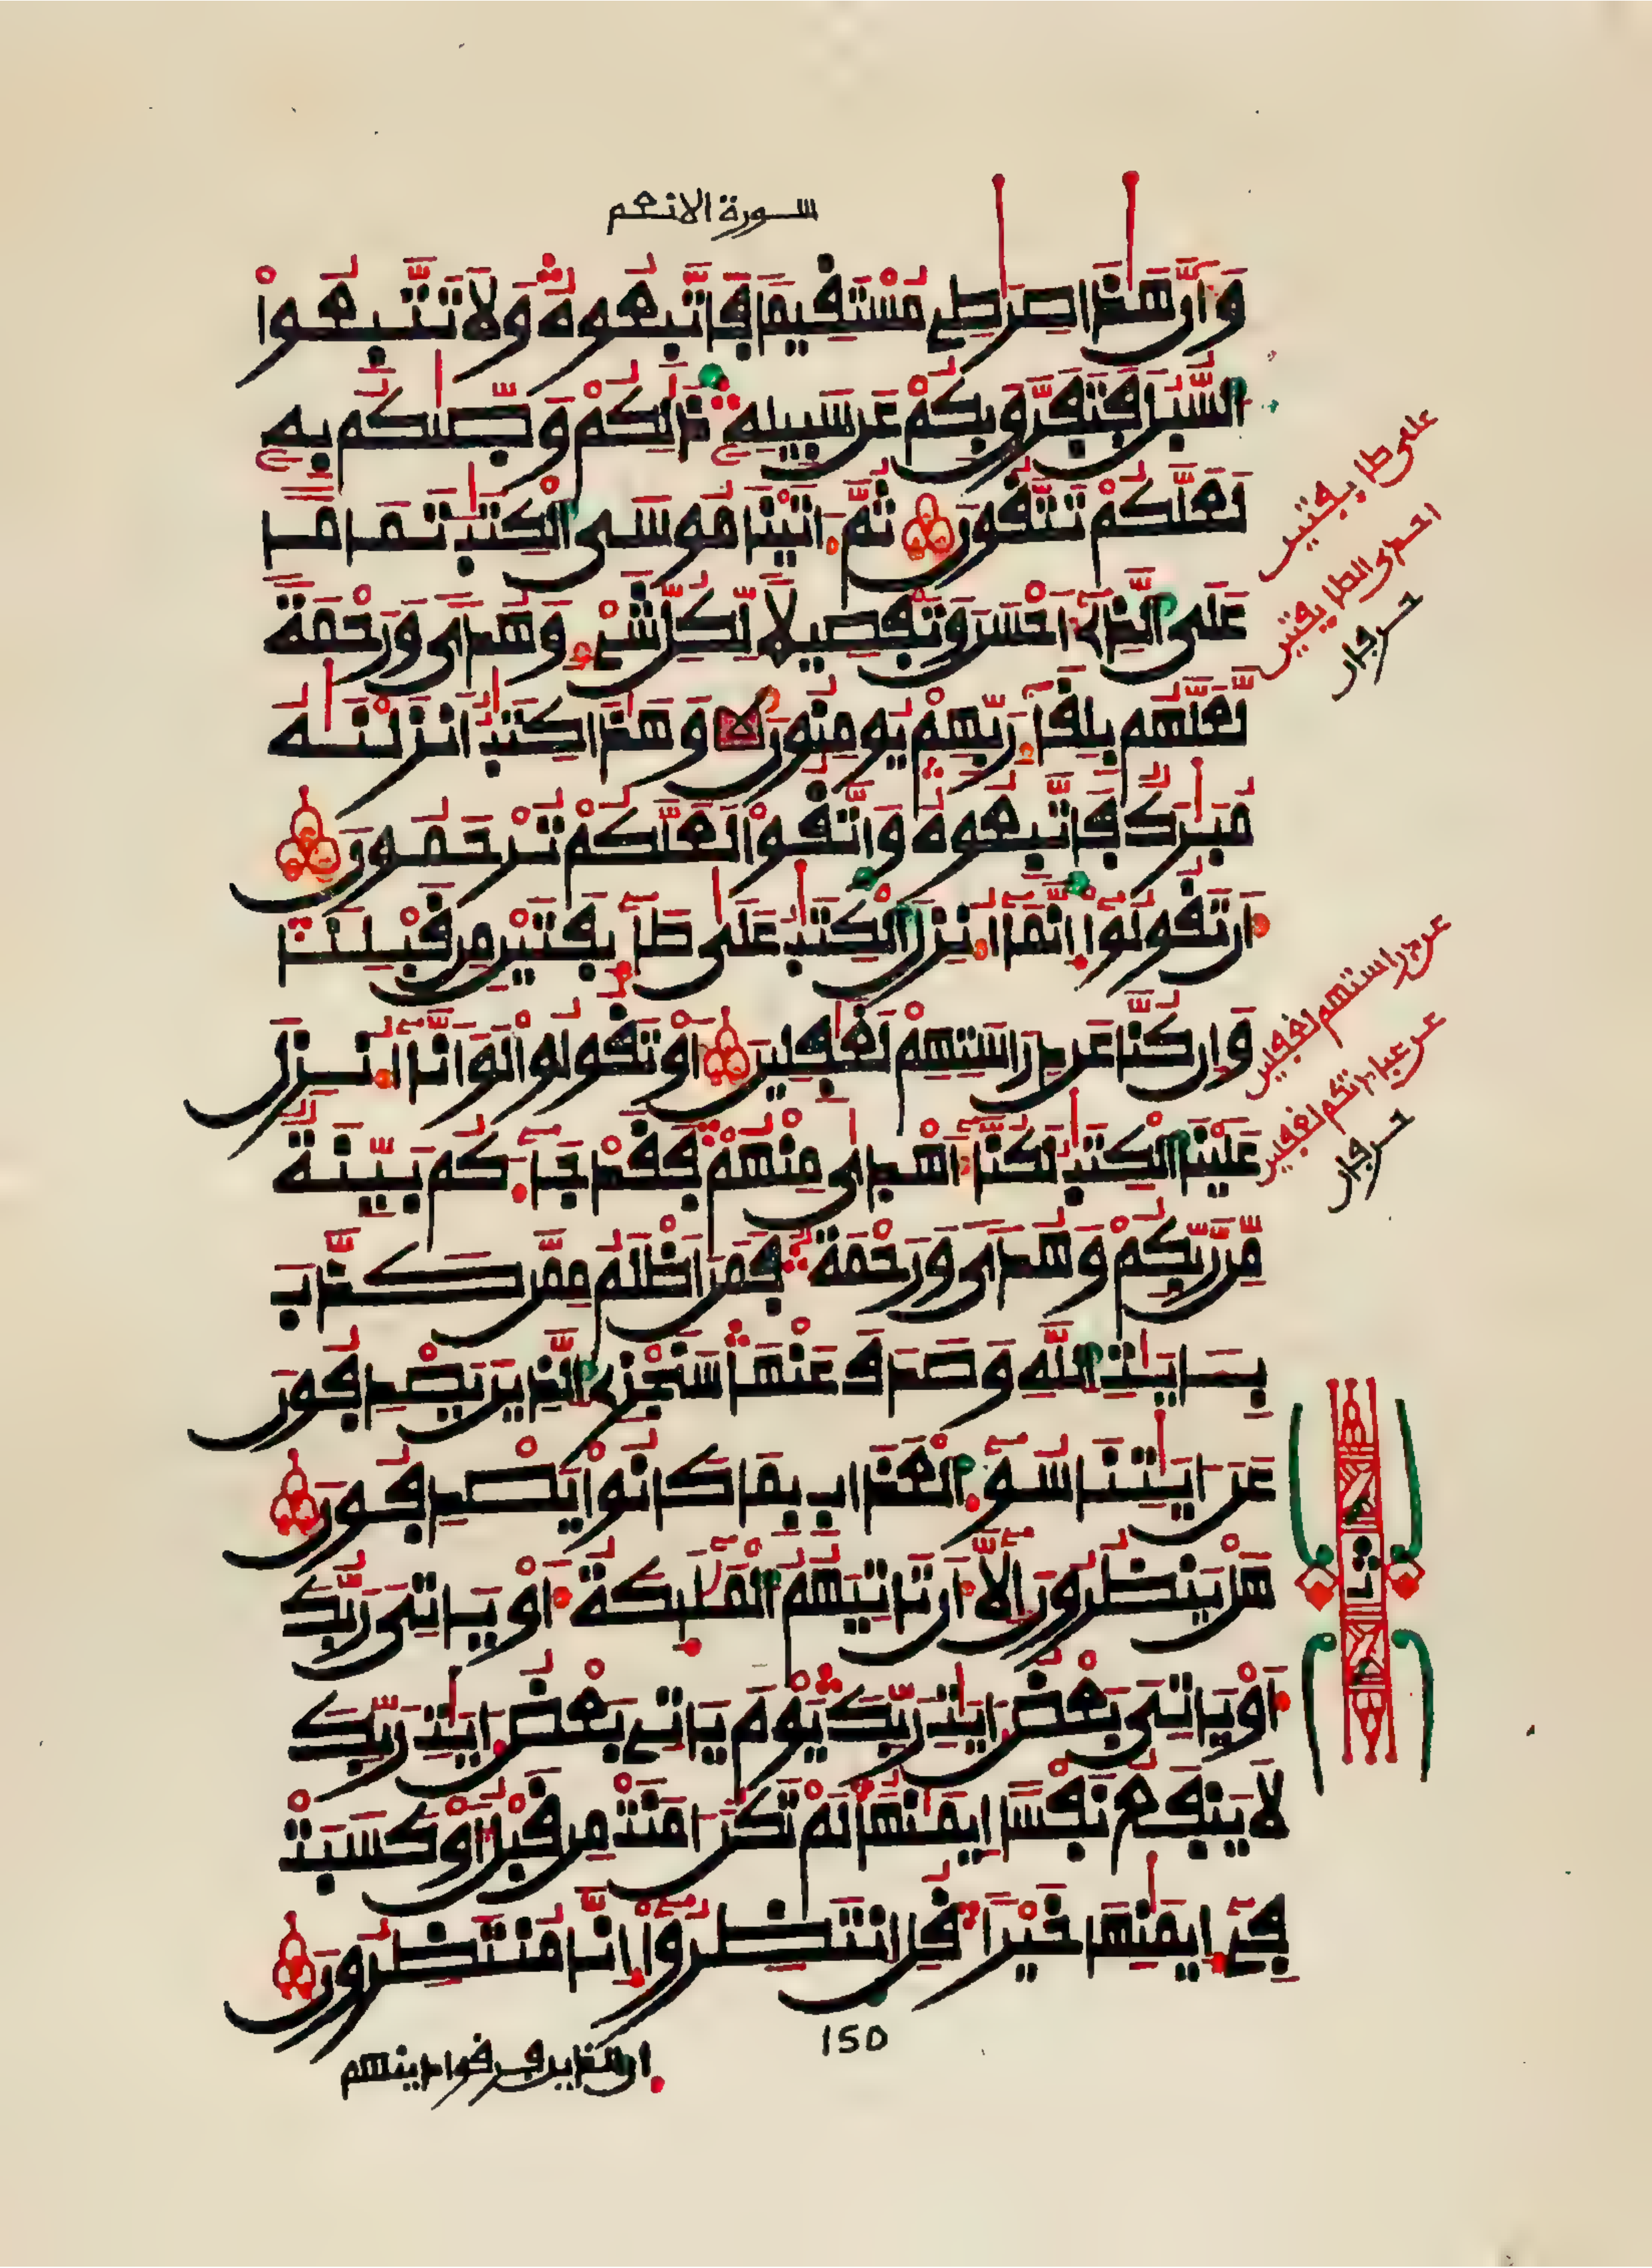 سورة الانعم
وَأَنَّ هَٰذَا صِرَٰطِے مُسْتَقِيمًا فَاتَّبِعُوهُ وَلَا تَتَّبِعُواْ
السُّبُلَ فَتَفَرَّقَ بِكُمْ عَن سَبِيلِهِۦ ذَٰلِكُمْ وَصَّىٰكُم بِهِۦ
لَعَلَّكُمْ تَتَّقُونَ ثُمَّ ءَاتَيْنَا مُوسَى الْكِتَٰبَ تَمَامًا
عَلَى الَّذِےٓ أَحْسَنَ وَتَفْصِيلًا لِّكُلِّ شَےْءٍ وَهُدًى وَرَحْمَةً
لَّعَلَّهُم بِلِقَآءِ رَبِّهِمْ يُومِنُونَ وَهَٰذَا كِتَٰبٌ أَنزَلْنَٰهُ
مُبَٰرَكٌ فَاتَّبِعُوهُ وَاتَّقُواْ لَعَلَّكُمْ تُرْحَمُونَ
أَن تَقُولُوٓاْ إِنَّمَآ أُنزِلَ الْكِتَٰبُ عَلَىٰ طَآئِفَتَيْنِ مِن قَبْلِنَا
وَإِن كُنَّا عَن دِرَاسَتِهِمْ لَغَٰفِلِينَ أَوْ تَقُولُواْ لَوَ اَنَّآ أُنزِلَ
عَلَيْنَا الْكِتَٰبُ لَكُنَّآ أَهْدَىٰ مِنْهُمْ فَقَدْ جَآءَكُم بَيِّنَةٌ
مِّن رَّبِّكُمْ وَهُدًى وَرَحْمَةٌ فَمَنَ اَظْلَمُ مِمَّن كَذَّبَ
بِـَٔايَٰتِ اللَّهِ وَصَدَفَ عَنْهَا سَنَجْزِے الَّذِينَ يَصْدِفُونَ
عَنَ ايَٰتِنَا سُوٓءَ الْعَذَابِ بِمَا كَانُواْ يَصْدِفُونَ
هَلْ يَنظُرُونَ إِلَّآ أَن تَاتِيَهُمُ الْمَلَٰٓئِكَةُ أَوْ يَاتِىَ رَبُّكَ
أَوْ يَاتِىَ بَعْضُ ءَايَٰتِ رَبِّكَ يَوْمَ يَاتِے بَعْضُ ءَايَٰتِ رَبِّكَ
لَا يَنفَعُ نَفْسًا اِيمَٰنُهَا لَمْ تَكُنَ امَنَتْ مِن قَبْلُ أَوْ كَسَبَتْ
فِےٓ إِيمَٰنِهَا خَيْرًا قُلِ انتَظِرُوٓاْ إِنَّا مُنتَظِرُونَ
على طايفتين
احدى الطايفتين
حرفان
عن دراستهم لغفلين
عن عبادتكم لغفلين
حرفان
ثمن
150
ان الذين فرقوا دينهم